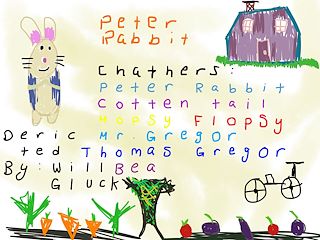 Peter
Rabbit
Chathers:
Peter Rabbit
Cotten tail
Mopsy Flopsy
Deric Mr. Gregor
ted Thomas Gregor
By: Will Bea
Gluck